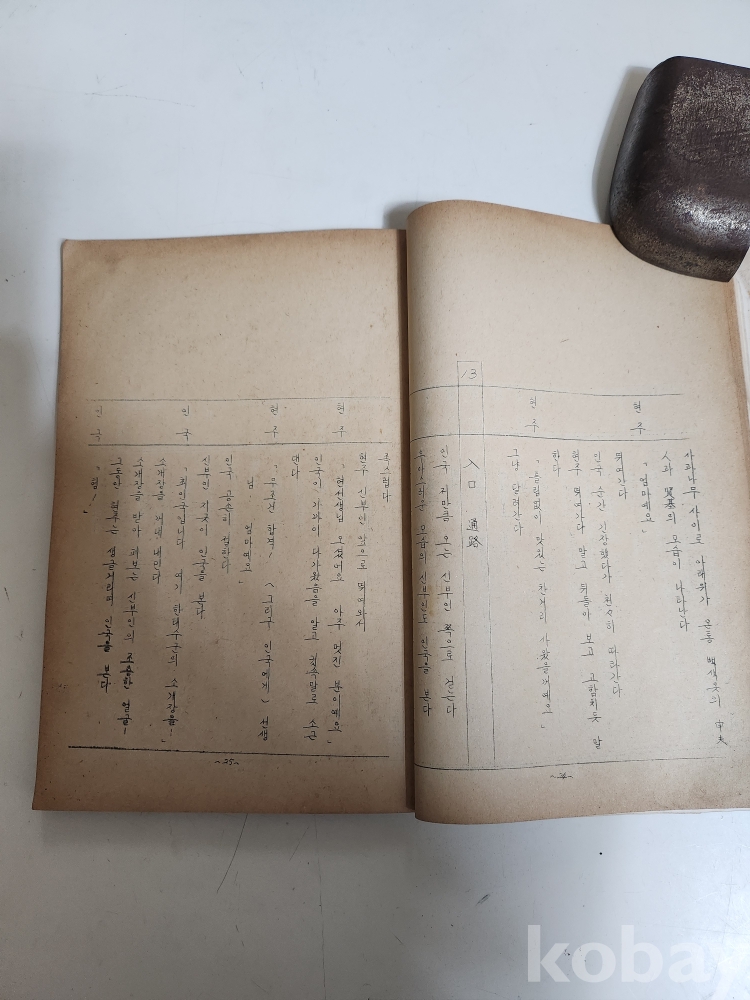 사과나무 사이로 아래위가 온통 백색옷의 申夫
人과 賢基의 모습이 나타난다
현주 「엄마예요」
뛰어간다
인국 순간 긴장했다가 천천히 따라간다
현주 뛰어가다 말고 뒤돌아 보고 고함치듯 말
한다
현주 「틀림없이 맛있는 찬거리 사왔을거예요」
그냥 달려간다
13 入口 通路
인국 저만큼 오는 신부인 쪽으로 걷는다
모습의 신부인도 인국을 본다
조스럽다
현주 신부인 앞으로 뛰어와서
현주 「현선생님 오셨어요 아주 멋진 분이예요」
인국이 가까이 다가왔음을 알고 귓속말로 소근
댄다
현주 「우선 합격! (그리구 인국에게) 선생
님 엄마예요」
인국 공손히 절한다
신부인 지긋이 인국을 본다
인국 「최인국입니다 여기 한태수군의 소개장을!」
소개장을 꺼내 내민다
소개장을 받아 펴보는 신부인의 조촐한 얼굴!
그동안 현주는 생글거리며 인국을 본다
인국
~24~
~25~
kobay